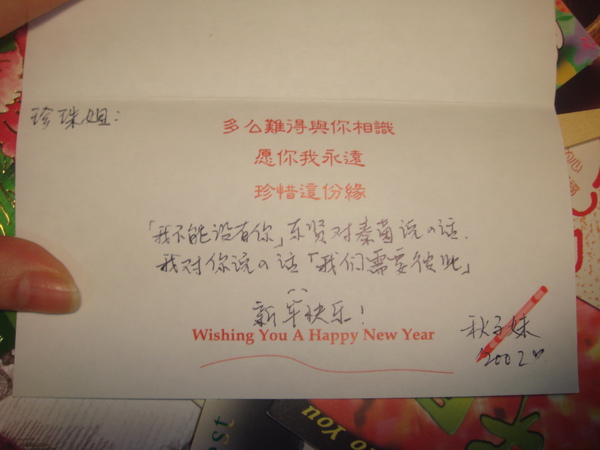 珍珠姐：
多么難得與你相識
愿你我永遠
珍惜這份緣
「我不能没有你」东贤对秦茵说の话.
我对你说の话「我们需要彼此」
新年快乐！
Wishing You A Happy New Year
秋子妹
2002
st
to You